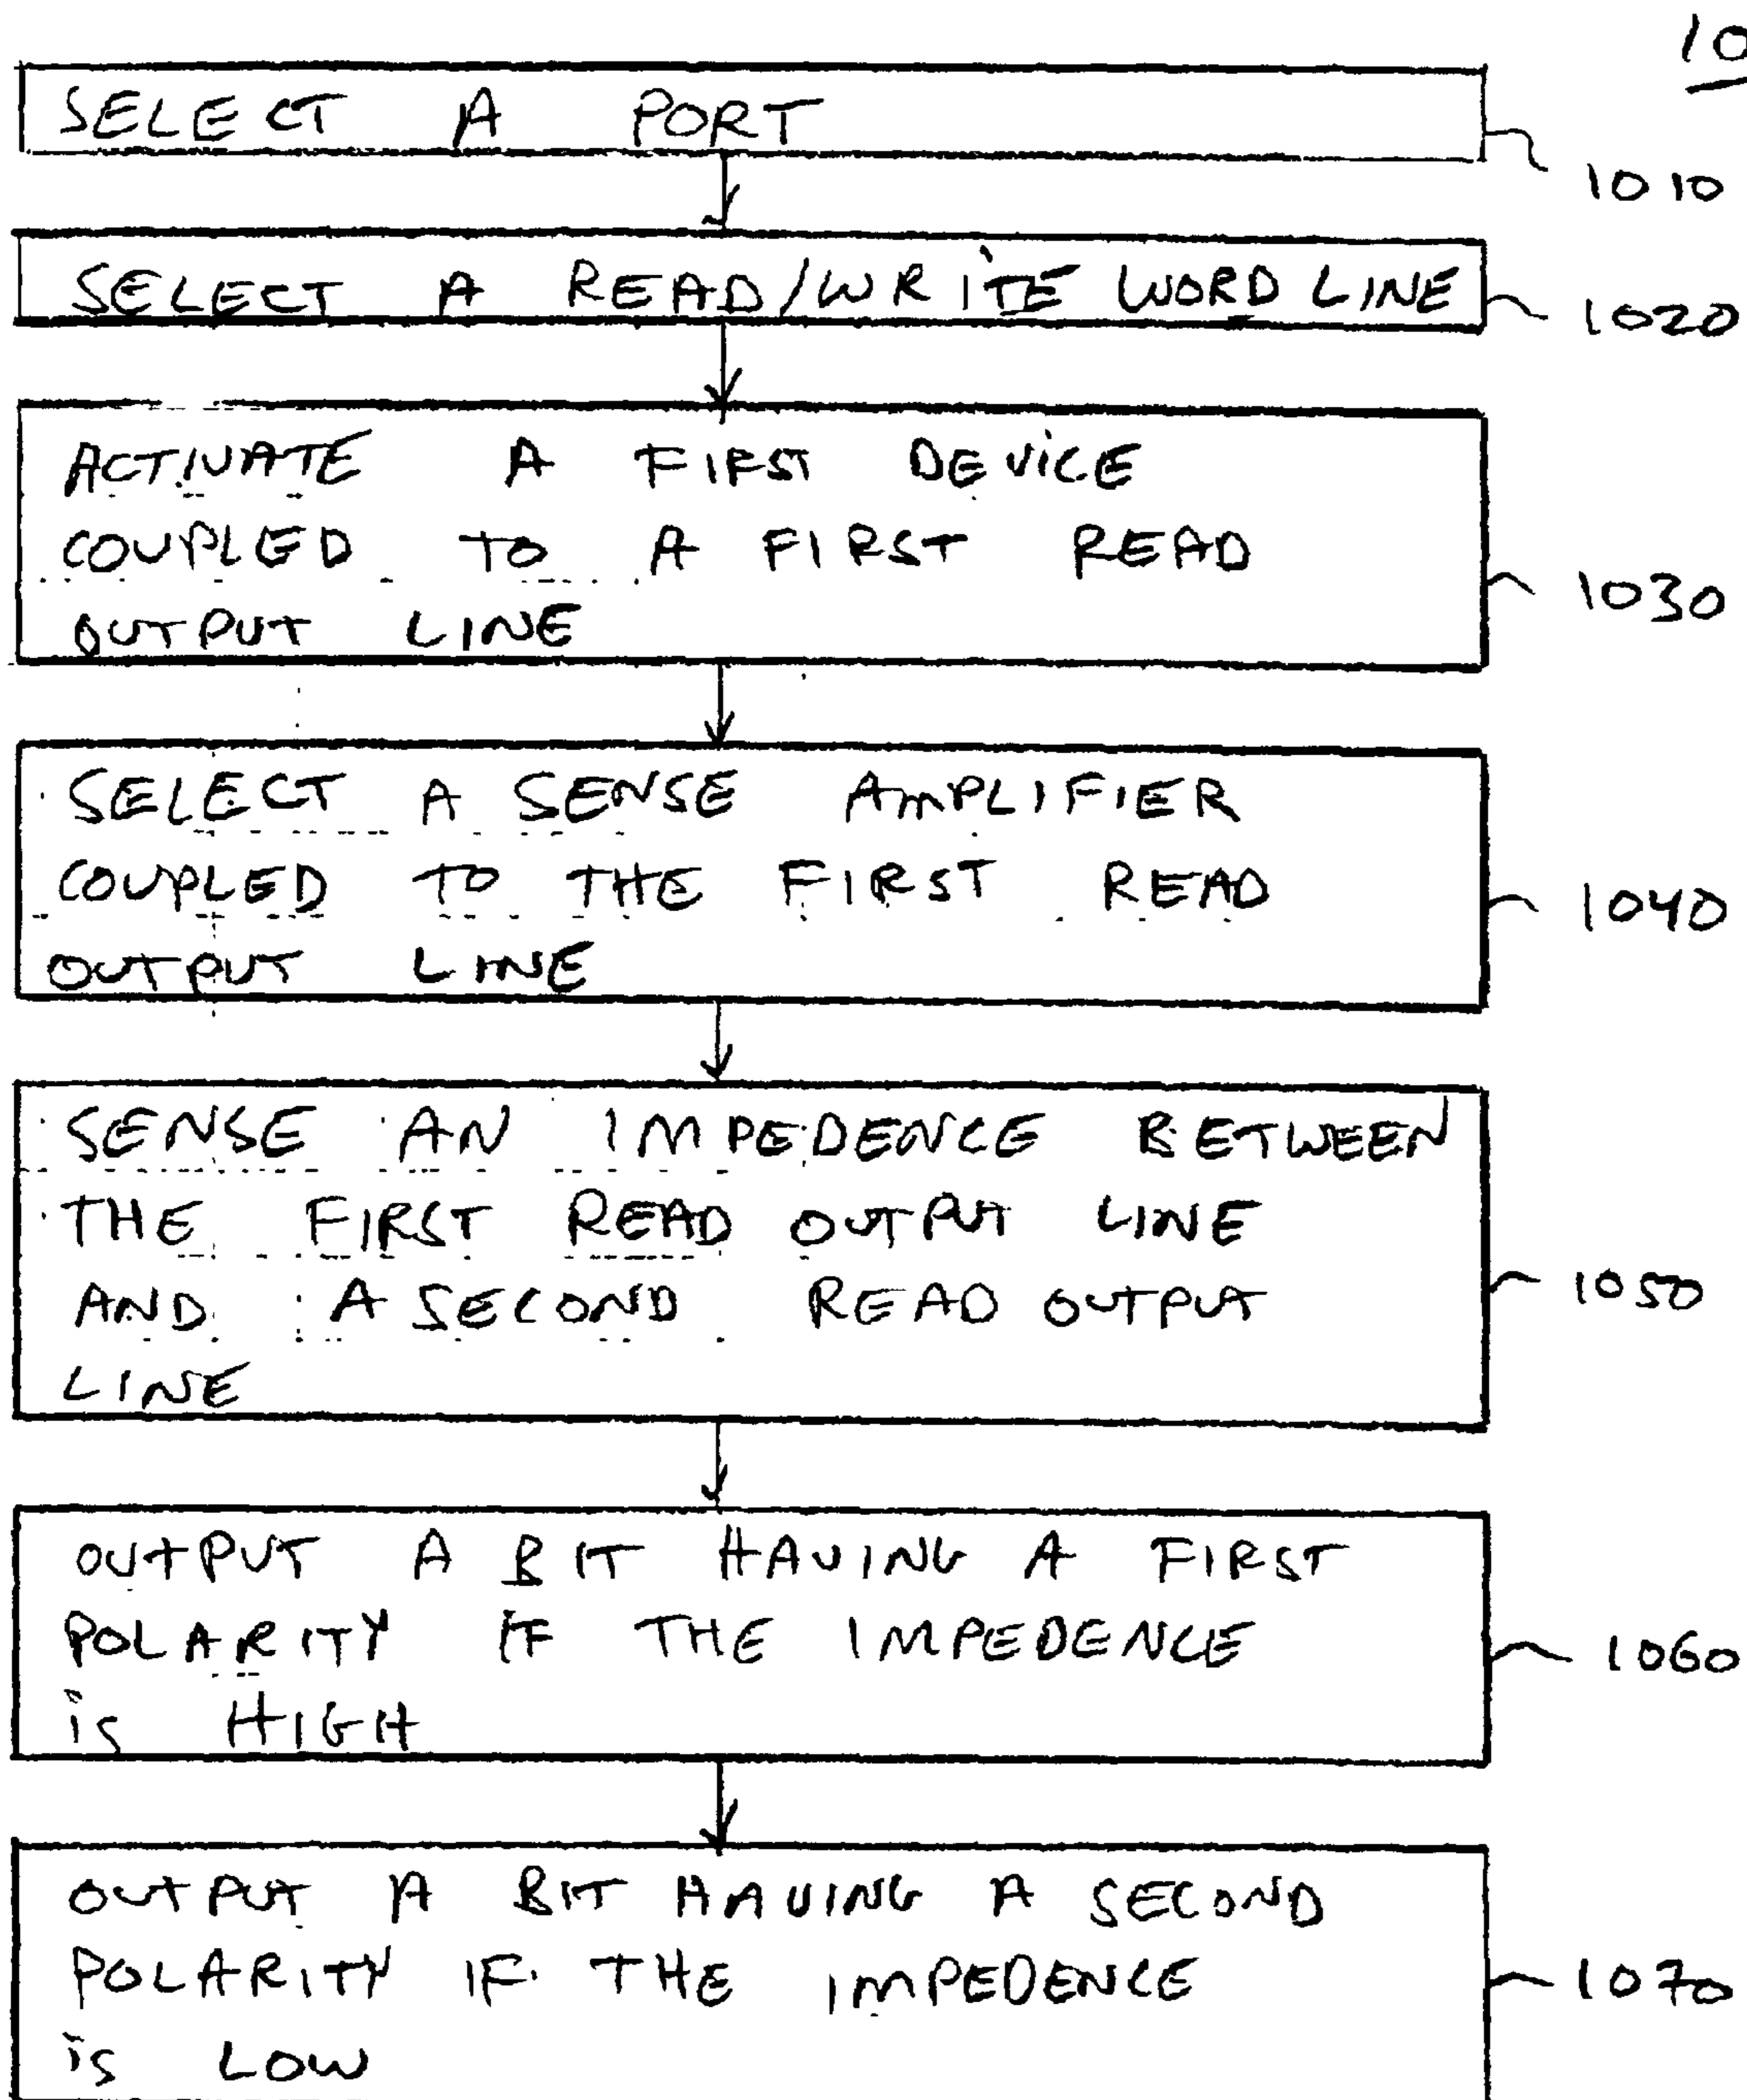 10
SELECT A PORT
1010
SELECT A READ/WRITE WORD LINE
1020
ACTIVATE A FIRST DEVICE
COUPLED TO A FIRST READ
OUTPUT LINE
1030
SELECT A SENSE AMPLIFIER
COUPLED TO THE FIRST READ
OUTPUT LINE
1040
SENSE AN IMPEDENCE BETWEEN
THE FIRST READ OUTPUT LINE
AND A SECOND READ OUTPUT
LINE
1050
OUTPUT A BIT HAVING A FIRST
POLARITY IF THE IMPEDENCE
is HIGH
1060
OUTPUT A BIT HAVING A SECOND
POLARITY IF THE IMPEDENCE
is LOW
1070